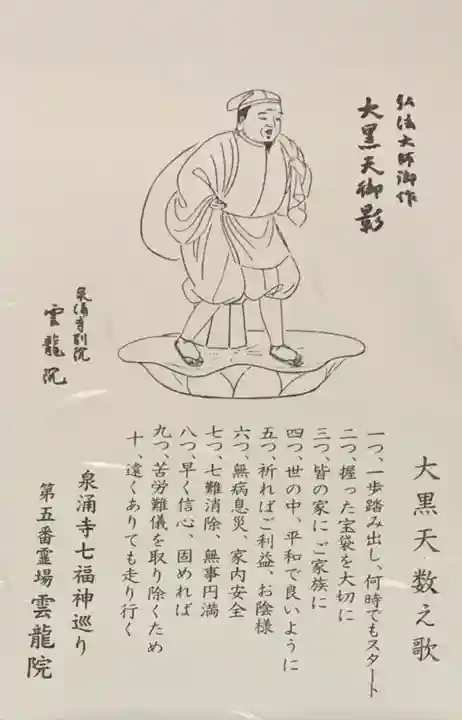 弘法大師御作
大黒天御影
泉涌寺別院
雲龍院
大黒天数え歌
一つ、一歩踏み出し、何時でもスタート
二つ、握った宝袋を大切に
三つ、皆の家にご家族に
四つ、世の中、平和で良いように
五つ、祈ればご利益、お陰様
六つ、無病息災、家内安全
七つ、七難消除、無事円満
八つ、早く信心、固めれば
九つ、苦労難儀を取り除くため
十、遠くありても走り行く
泉涌寺七福神巡り
第五番霊場雲龍院